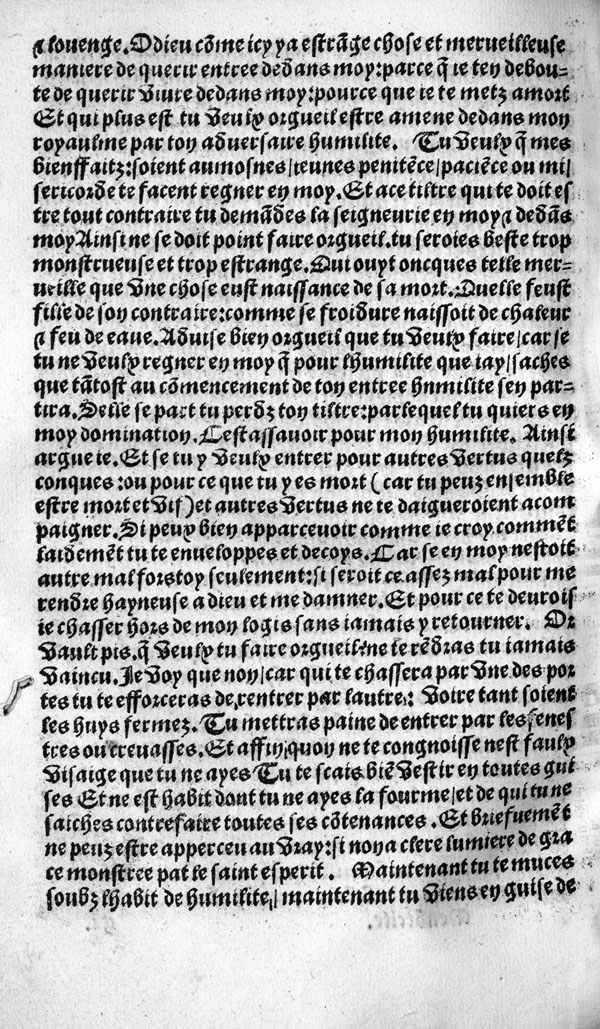 ⁊ louenge. O dieu cõme icy ya estrãge chose et merueilleuse
maniere de querir entree dedãns moy: parce q̃ ie ten debou-
te de querir viure dedans moy: pource que ie te metz a mort
Et qui plus est tu veulx orgueil estre amene dedans mon
royaulme par ton aduersaire humilite. Tu veulx q̃ mes
bienffaitz: soient aumosnes/ ieunes penitẽce/ paciẽce ou mi/
sericorde te facent regner en moy. Et a ce tiltre qui te doit es
tre tout contraire tu demãdes la seigneurie en moy ⁊ dedãs
moy Ainsi ne se doit point faire orgueil. tu seroies beste trop
monstrueuse et trop estrange. Qui ouyt oncques telle mer-
ueille que vne chose eust naissance de sa mort. Quelle feust
fille de son contraire: comme se froidure naissoit de chaleur
⁊ feu de eaue. Aduise bien orgueil que tu veulx faire/ car se
tu ne veulx regner en moy q̃ pour lhumilite que iay/ saches
que tãtost au cõmencement de ton entree hnmilite sen par-
tira. Selle se part tu perdz ton tiltre: par lequel tu quiers en
moy domination. Cest assauoir pour mon humilite. Ainsi
argue ie. Et se tu y veulx entrer pour autres vertus quelz
conques: ou pour ce que tu y es mort (car tu peuz ensemble
estre mort et vif) et autres vertus ne te daigueroient acom
paigner. Si peux bien apparceuoir comme ie croy commẽt
laidemẽt tu te enueloppes et decoys. Car se en moy nestoit
autre mal fors toy seulement: si seroit ce assez mal pour me
rendre hayneuse a dieu et me damner. Et pour ce te deurois
ie chasser hors de mon logis sans iamais y retourner. Or
vault pis. q̃ veulx tu faire orgueil: ne te rẽdras tu iamais
vaincu. Je voy que non/ car qui te chassera par vne des por
tes tu te efforceras de rentrer par lautre: voire tant soient
les huys fermez. Tu mettras paine de entrer par les fenes
tres ou creuasses. Et affin quon ne te congnoisse nest faulx
visaige que tu ne ayes Tu te scais biẽ vestir en toutes gui
ses Et ne est habit dont tu ne ayes la fourme/ et de qui tu ne
saiches contrefaire toutes ses cõtenances. Et briefuemẽt
ne peuz estre apperceu au vray: si non a clere lumiere de gra
ce monstree pat le saint esperit. Maintenant tu te muces
soubz lhabit de humilite/ maintenant tu viens en guise de